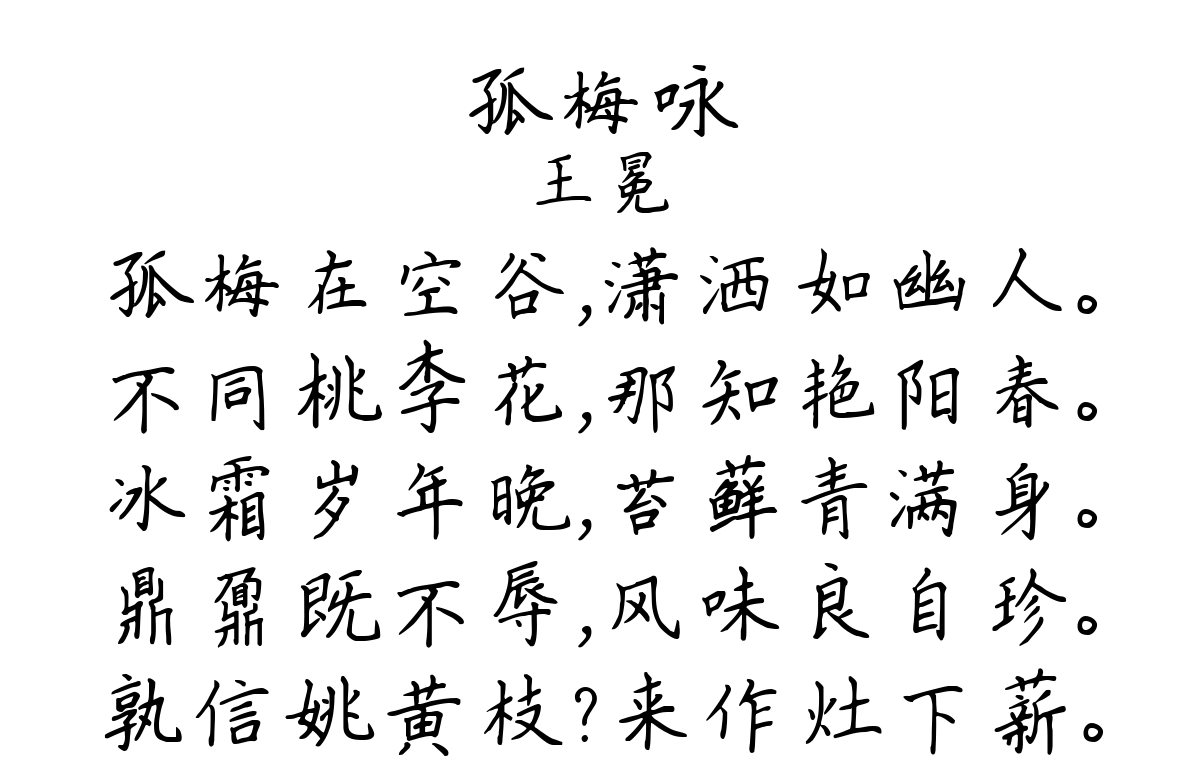 孤梅咏
王冕
孤梅在空谷,潇洒如幽人。
不同桃李花,那知艳阳春。
冰霜岁年晚,苔藓青满身。
鼎鼐既不辱,风味良自珍。
孰信姚黄枝?来作灶下薪。